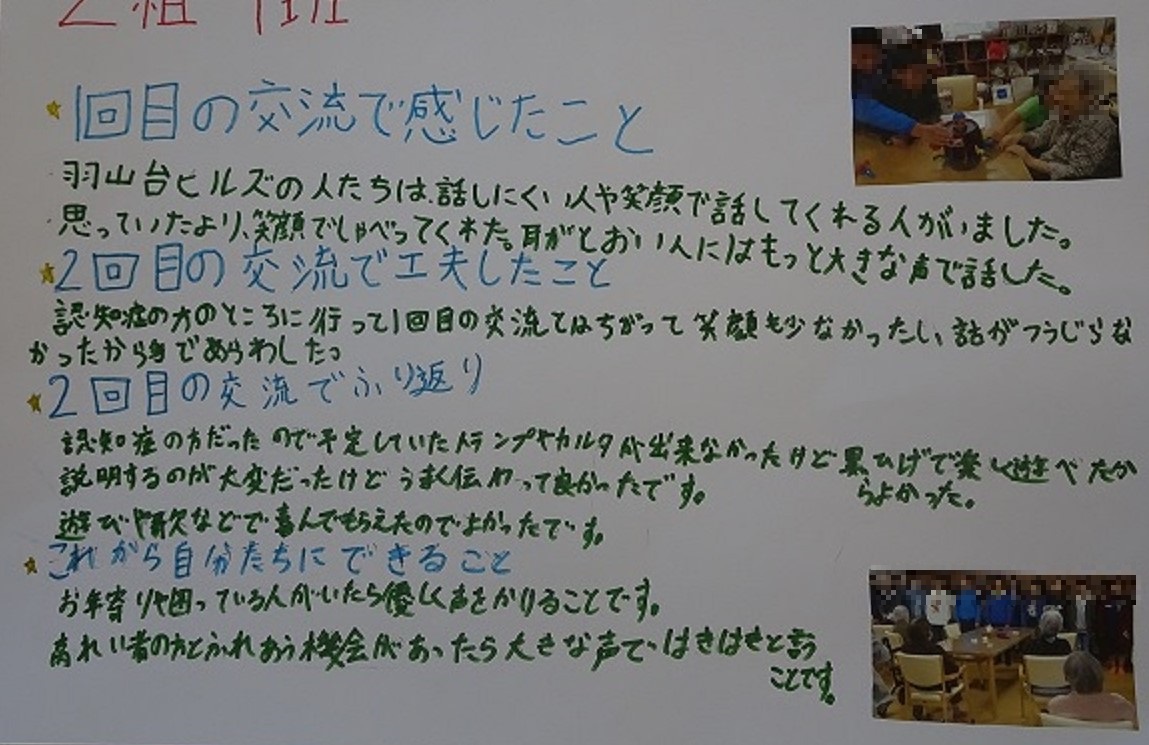 2組 1班
1回目の交流で感じたこと
羽山台ヒルズの人たちは、話しにくい人や笑顔で話してくれる人がいました。
思っていたより、笑顔でしゃべってくれた。耳がとおい人にはもっと大きな声で話した。
2回目の交流で工夫したこと
認知症の方のところに行って1回目の交流とはちがって笑顔も少なかったし、話がつうじらな
かったから身であらわした。
2回目の交流でふり返り
認知症の方だったので予定していたスタンプやカルタが出来なかったけど黒ひげで楽しく遊べたか
らよかった。
説明するのが大変だったけどうまく伝わって良かったです。
遊びや歌などで喜んでもらえたのでよかったです。
これから自分たちにできること
お年寄りや困っている人がいたら優しく声をかけることです。
高れい者の方とふれあう機会があったら大きな声で、はきはきと言う
ことです。